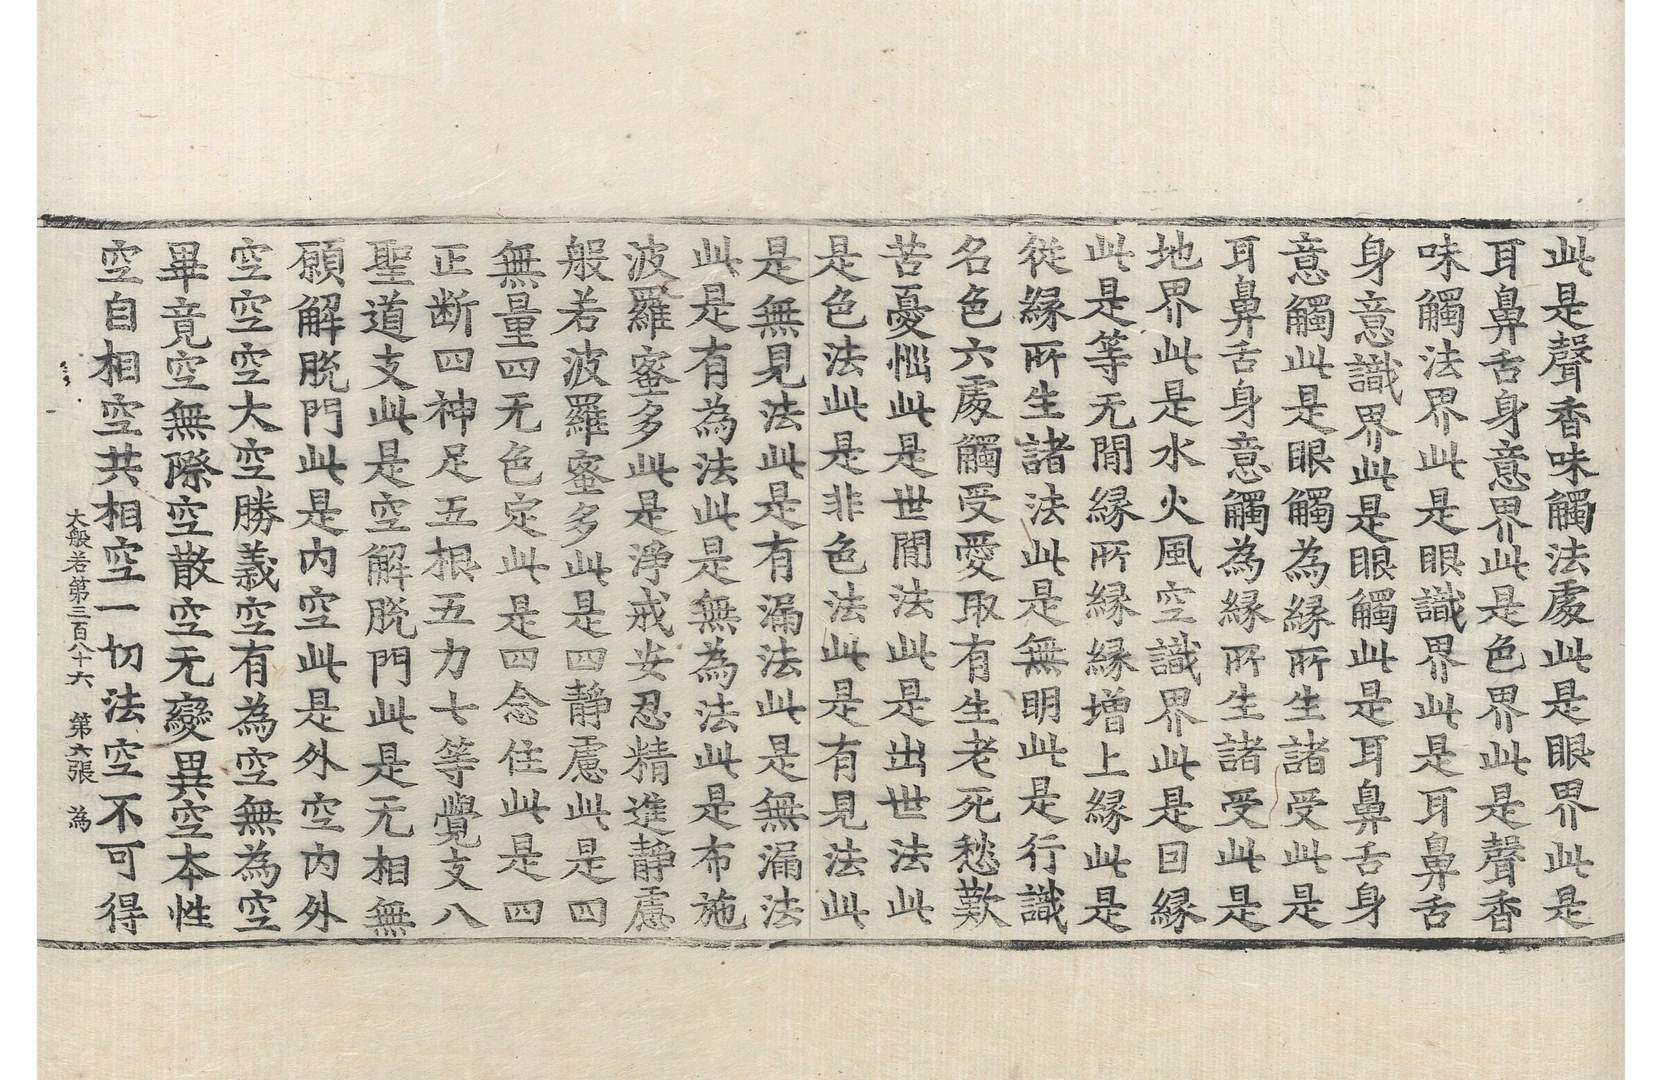 此是聲香味觸法處此是眼界此是
耳鼻舌身意界此是色界此是聲香
味觸法界此是眼識界此是耳鼻舌
身意識界此是眼觸此是耳鼻舌身
意觸此是眼觸為縁所生諸受此是
耳鼻舌身意觸為縁所生諸受此是
地界此是水火風空識界此是因縁
此是等无閒縁所縁縁增上縁此是
從縁所生諸法此是無明此是行識
名色六處觸受愛取有生老死愁歎
苦憂惱此是世閒法此是出世法此
是色法此是非色法此是有見法此
是無見法此是有漏法此是無漏法
此是有為法此是無為法此是布施
波羅蜜多此是淨戒安忍精進靜慮
般若波羅蜜多此是四靜慮此是四
無量四无色定此是四念住此是四
正断四神足五根五力七等覺支八
聖道支此是空解脫門此是无相無
願解脫門此是內空此是外空內外
空空空大空勝義空有為空無為空
畢竟空無際空散空无變異空本性
空自相空共相空一切法空不可得
大般若第三百八十六 第六張 為